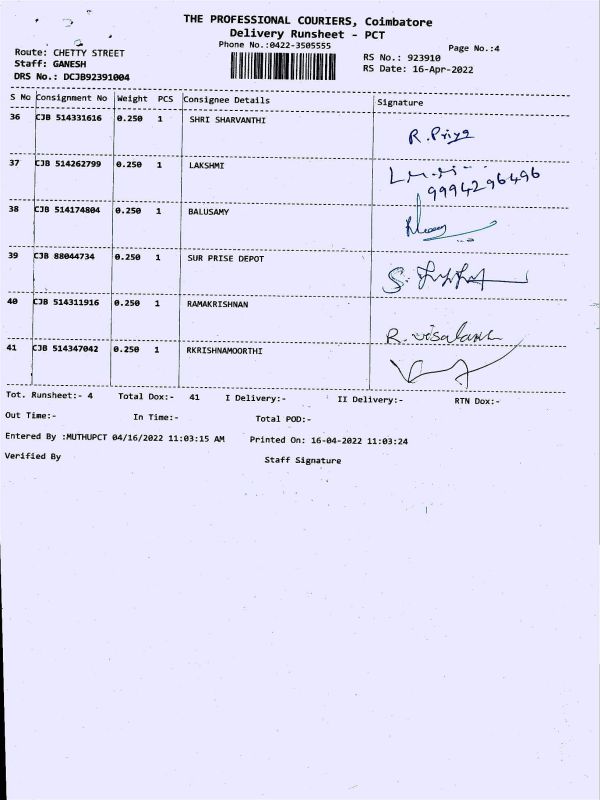 THE PROFESSIONAL COURIERS, Coimbatore
Delivery Runsheet - PCT
Phone No.:0422-3505555
Page No.:4
Route: CHETTY STREET
RS No.: 923910
Staff: GANESH
RS Date: 16-Apr-2022
DRS No.: DCJB92391004
S No Consignment No Weight PCS Consignee Details Signature
36 CJB 514331616 0.250 1 SHRI SHARVANTHI R. Priya
37 CJB 514262799 0.250 1 LAKSHMI
9994296496
38 CJB 514174804 0.250 1 BALUSAMY
39 CJB 88044734 0.250 1 SUR PRISE DEPOT
40 CJB 514311916 0.250 1 RAMAKRISHNAN
41 CJB 514347042 0.250 1 RKRISHNAMOORTHI
Tot. Runsheet:- 4 Total Dox:- 41 I Delivery:- II Delivery:- RTN Dox:-
Out Time:- In Time:- Total POD:-
Entered By :MUTHUPCT 04/16/2022 11:03:15 AM Printed On: 16-04-2022 11:03:24
Verified By Staff Signature